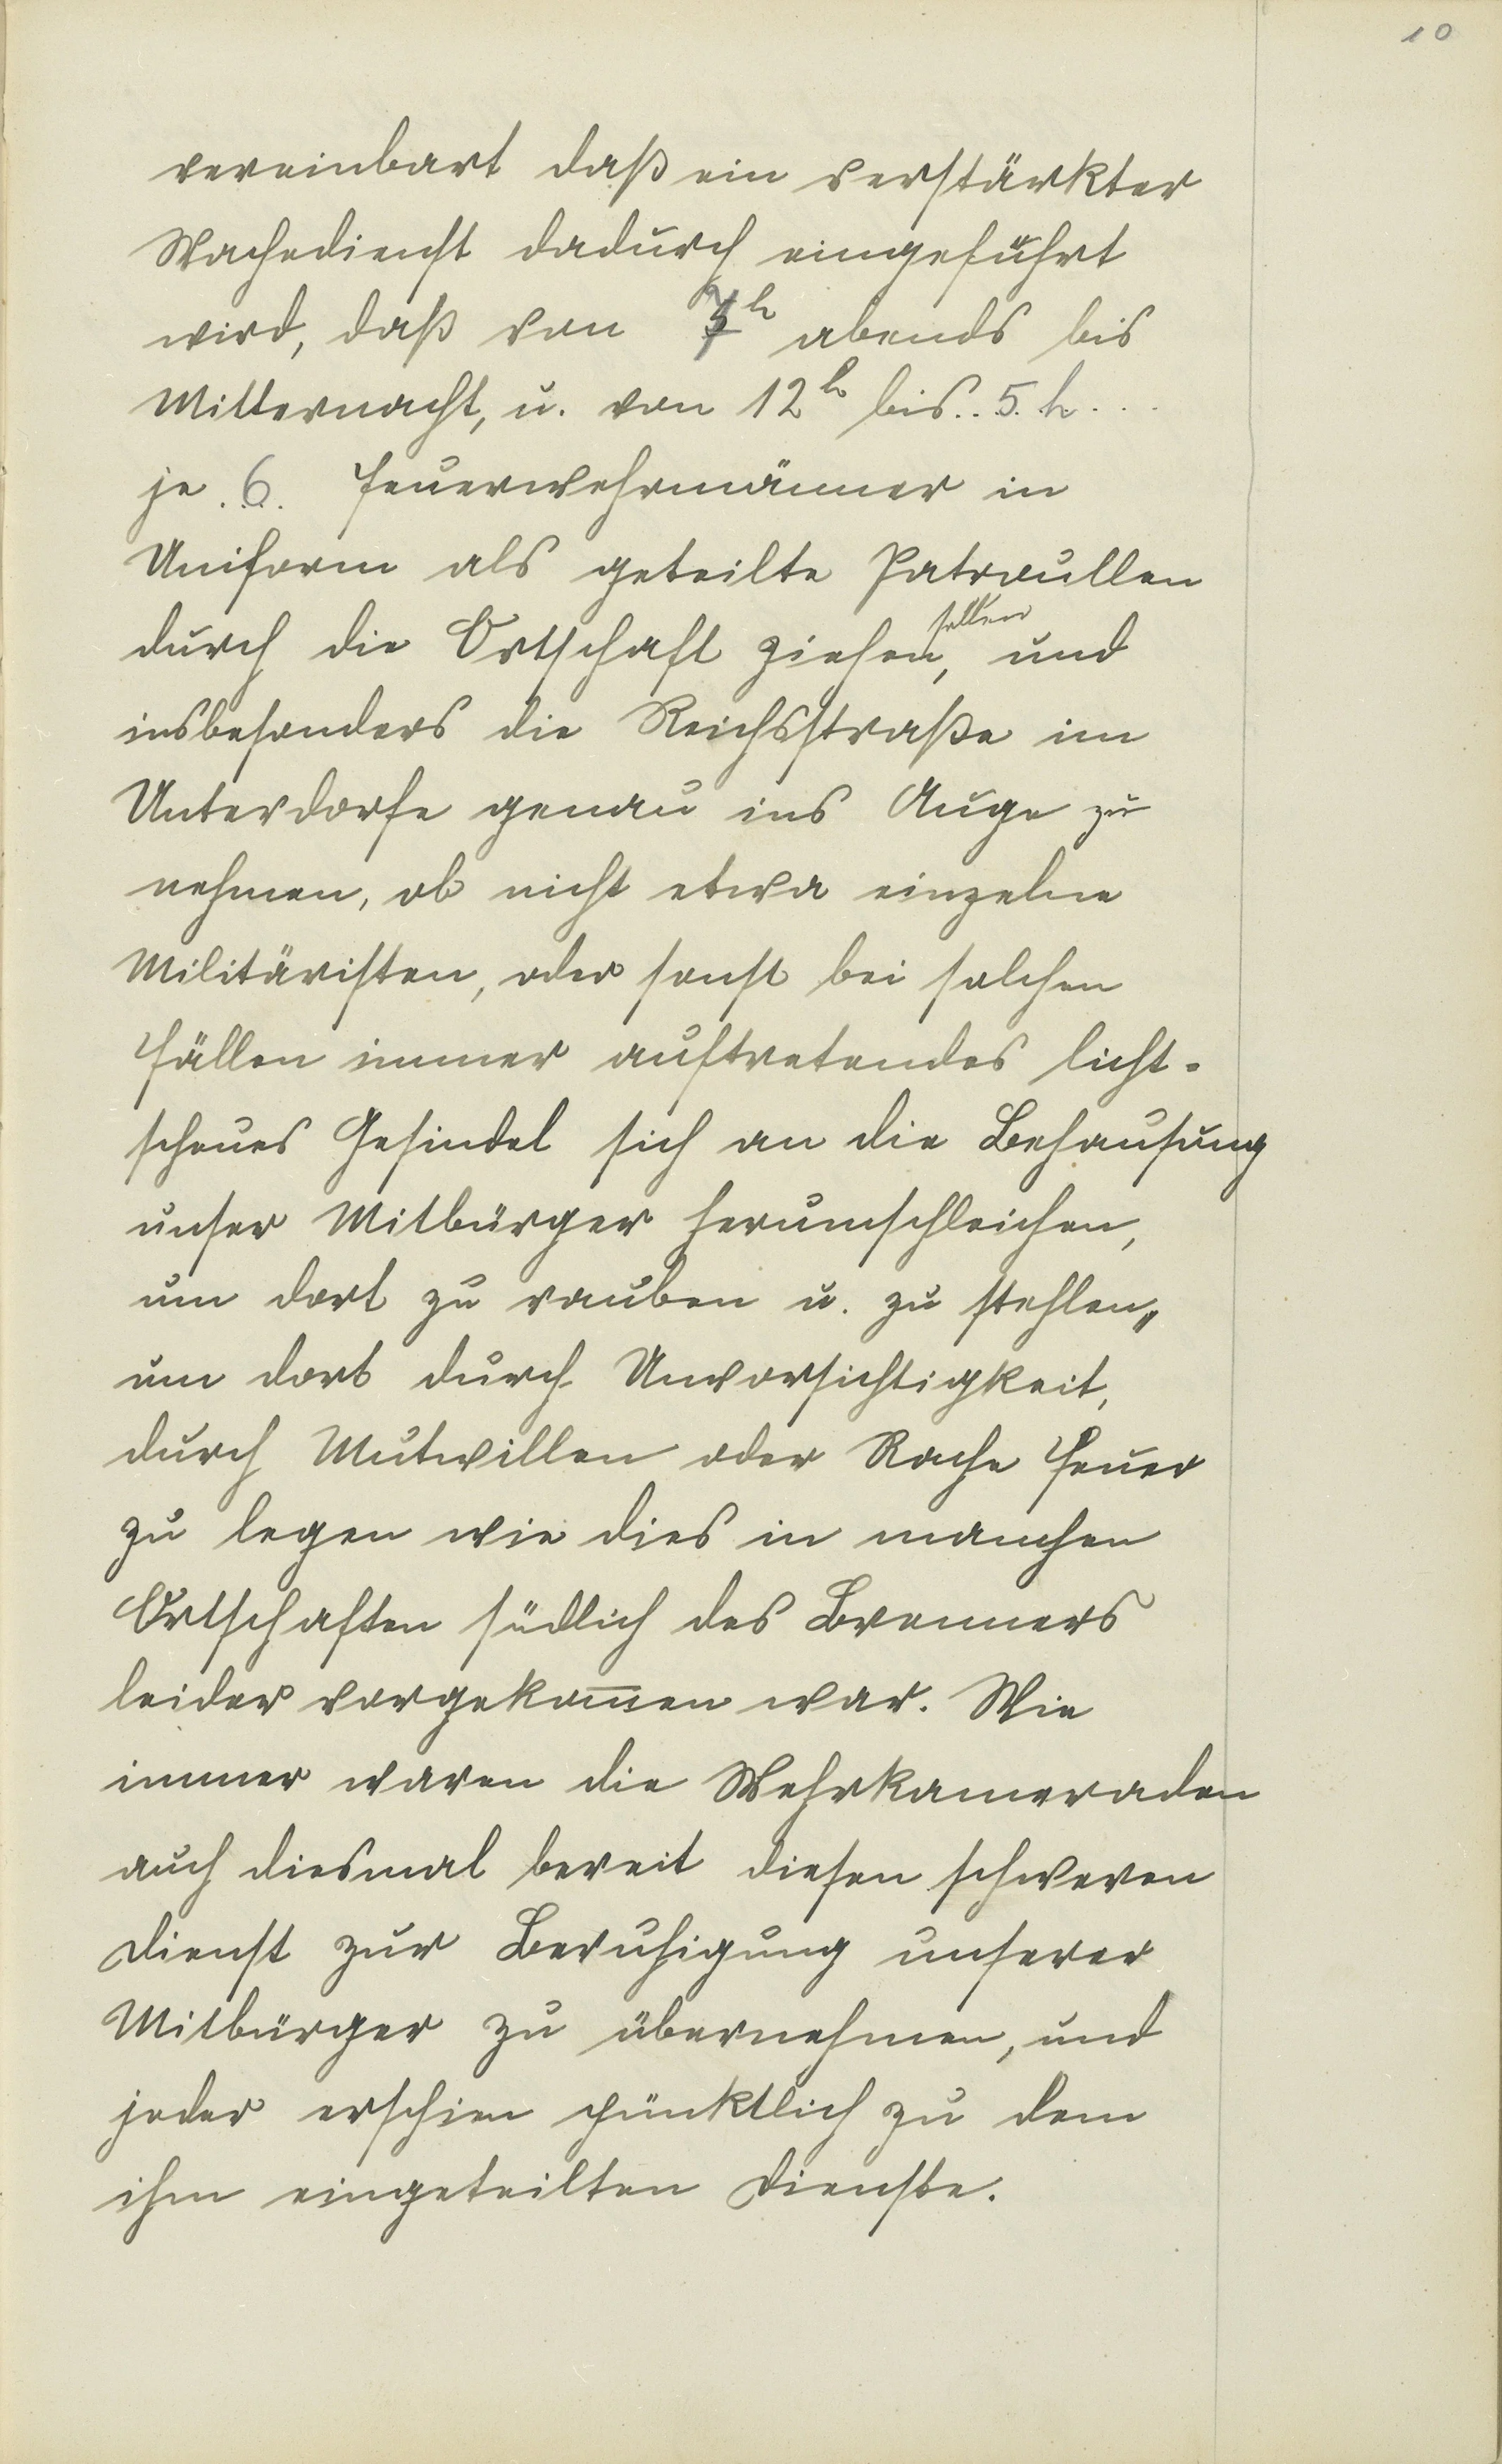 10
vereinbart daß ein verstärkter
Wachedienst dadurch eingeführt
wird, daß von 7h abends bis
Mitternacht, u. von 12h bis.. 5. h...
je .6. Feuerwehrmänner in
Uniform als geteilte Patroullen
durch die Ortschaft ziehen sollen, und
insbesonders die Reichsstraße im
Unterdorfe genau ins Auge zu
nehmen, ob nicht etwa einzelne
Militäristen, oder sonst bei solchen
Fällen immer auftretendes licht-
scheues Gesindel sich an die Behausung
unser Mitbürger herumschleichen,
um dort zu rauben u. zu stehlen,,
um dort durch Unvorsichtigkeit,
durch Mutwillen oder Rache Feuer
zu legen wie dies in manchen
Ortschaften südlich des Brenners
leider vorgekom̅en war. Wie
immer waren die Wehrkameraden
auch diesmal bereit diesen schweren
Dienst zur Beruhigung unserer
Mitbürger zu übernehmen, und
jeder erschien pünktlich zu dem
ihm eingeteilten Dienste.